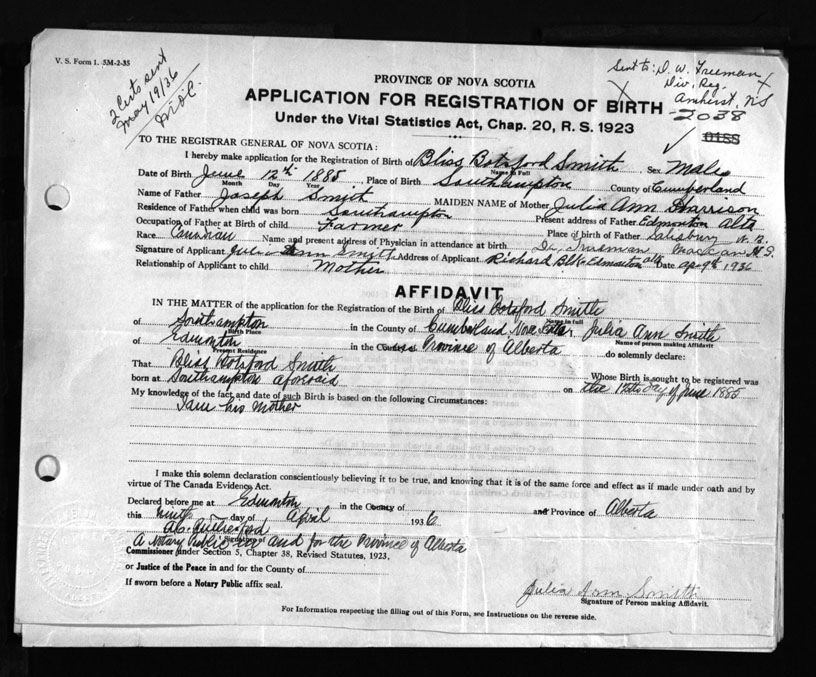 V. S. Form 1. 5M-2-35
2 Certs sent
May 19/36
M.O'C.
Sent to: D. W. Freeman
Div. Reg.
Amherst, N.S.
PROVINCE OF NOVA SCOTIA
APPLICATION FOR REGISTRATION OF BIRTH
2038
Under the Vital Statistics Act, Chap. 20, R. S. 1923
TO THE REGISTRAR GENERAL OF NOVA SCOTIA:
I hereby make application for the Registration of Birth of Bliss Botsford Smith Sex Male
Name in Full
Date of Birth June 12th 1885, Place of Birth Southampton County of Cumberland
Month Day Year
Name of Father Joseph Smith MAIDEN NAME of Mother Julia Ann Harrison
Residence of Father when child was born Southampton Present address of Father Edmonton Alta
Occupation of Father at Birth of child Farmer Place of birth of Father Salisbury N. B.
Race Canadian Name and present address of Physician in attendance at birth Dr. Maccan N.S.
Signature of Applicant Julia Ann Smith Address of Applicant Richard Blk Edmonton Alta Date Ap. 9th 1936
Relationship of Applicant to child Mother
AFFIDAVIT
IN THE MATTER of the application for the Registration of the Birth of Bliss Botsford Smith
Name in full
of Southampton in the County of Cumberland Nova Julia Ann Smith
Birth Place Name of person making Affidavit
of Edmonton in the Province of Alberta do solemnly declare:
Present Residence
That Bliss Botsford Smith Whose Birth is sought to be registered was
born at Southampton aforesaid on the 12th day of June 1885
My knowledge of the fact and date of such Birth is based on the following Circumstances:
I am his mother
I make this solemn declaration conscientiously believing it to be true, and knowing that it is of the same force and effect as if made under oath and by
virtue of The Canada Evidence Act.
Declared before me at Edmonton in the County of and Province of Alberta
this ninth day of April 1936
Signature of
A Notary Public in and for the Province of Alberta
Commissioner (under Section 5, Chapter 38, Revised Statutes, 1923,
or Justice of the Peace in and for the County of
If sworn before a Notary Public affix seal.
Julia Ann Smith
Signature of Person making Affidavit.
For Information respecting the filling out of this Form, see Instructions on the reverse side.